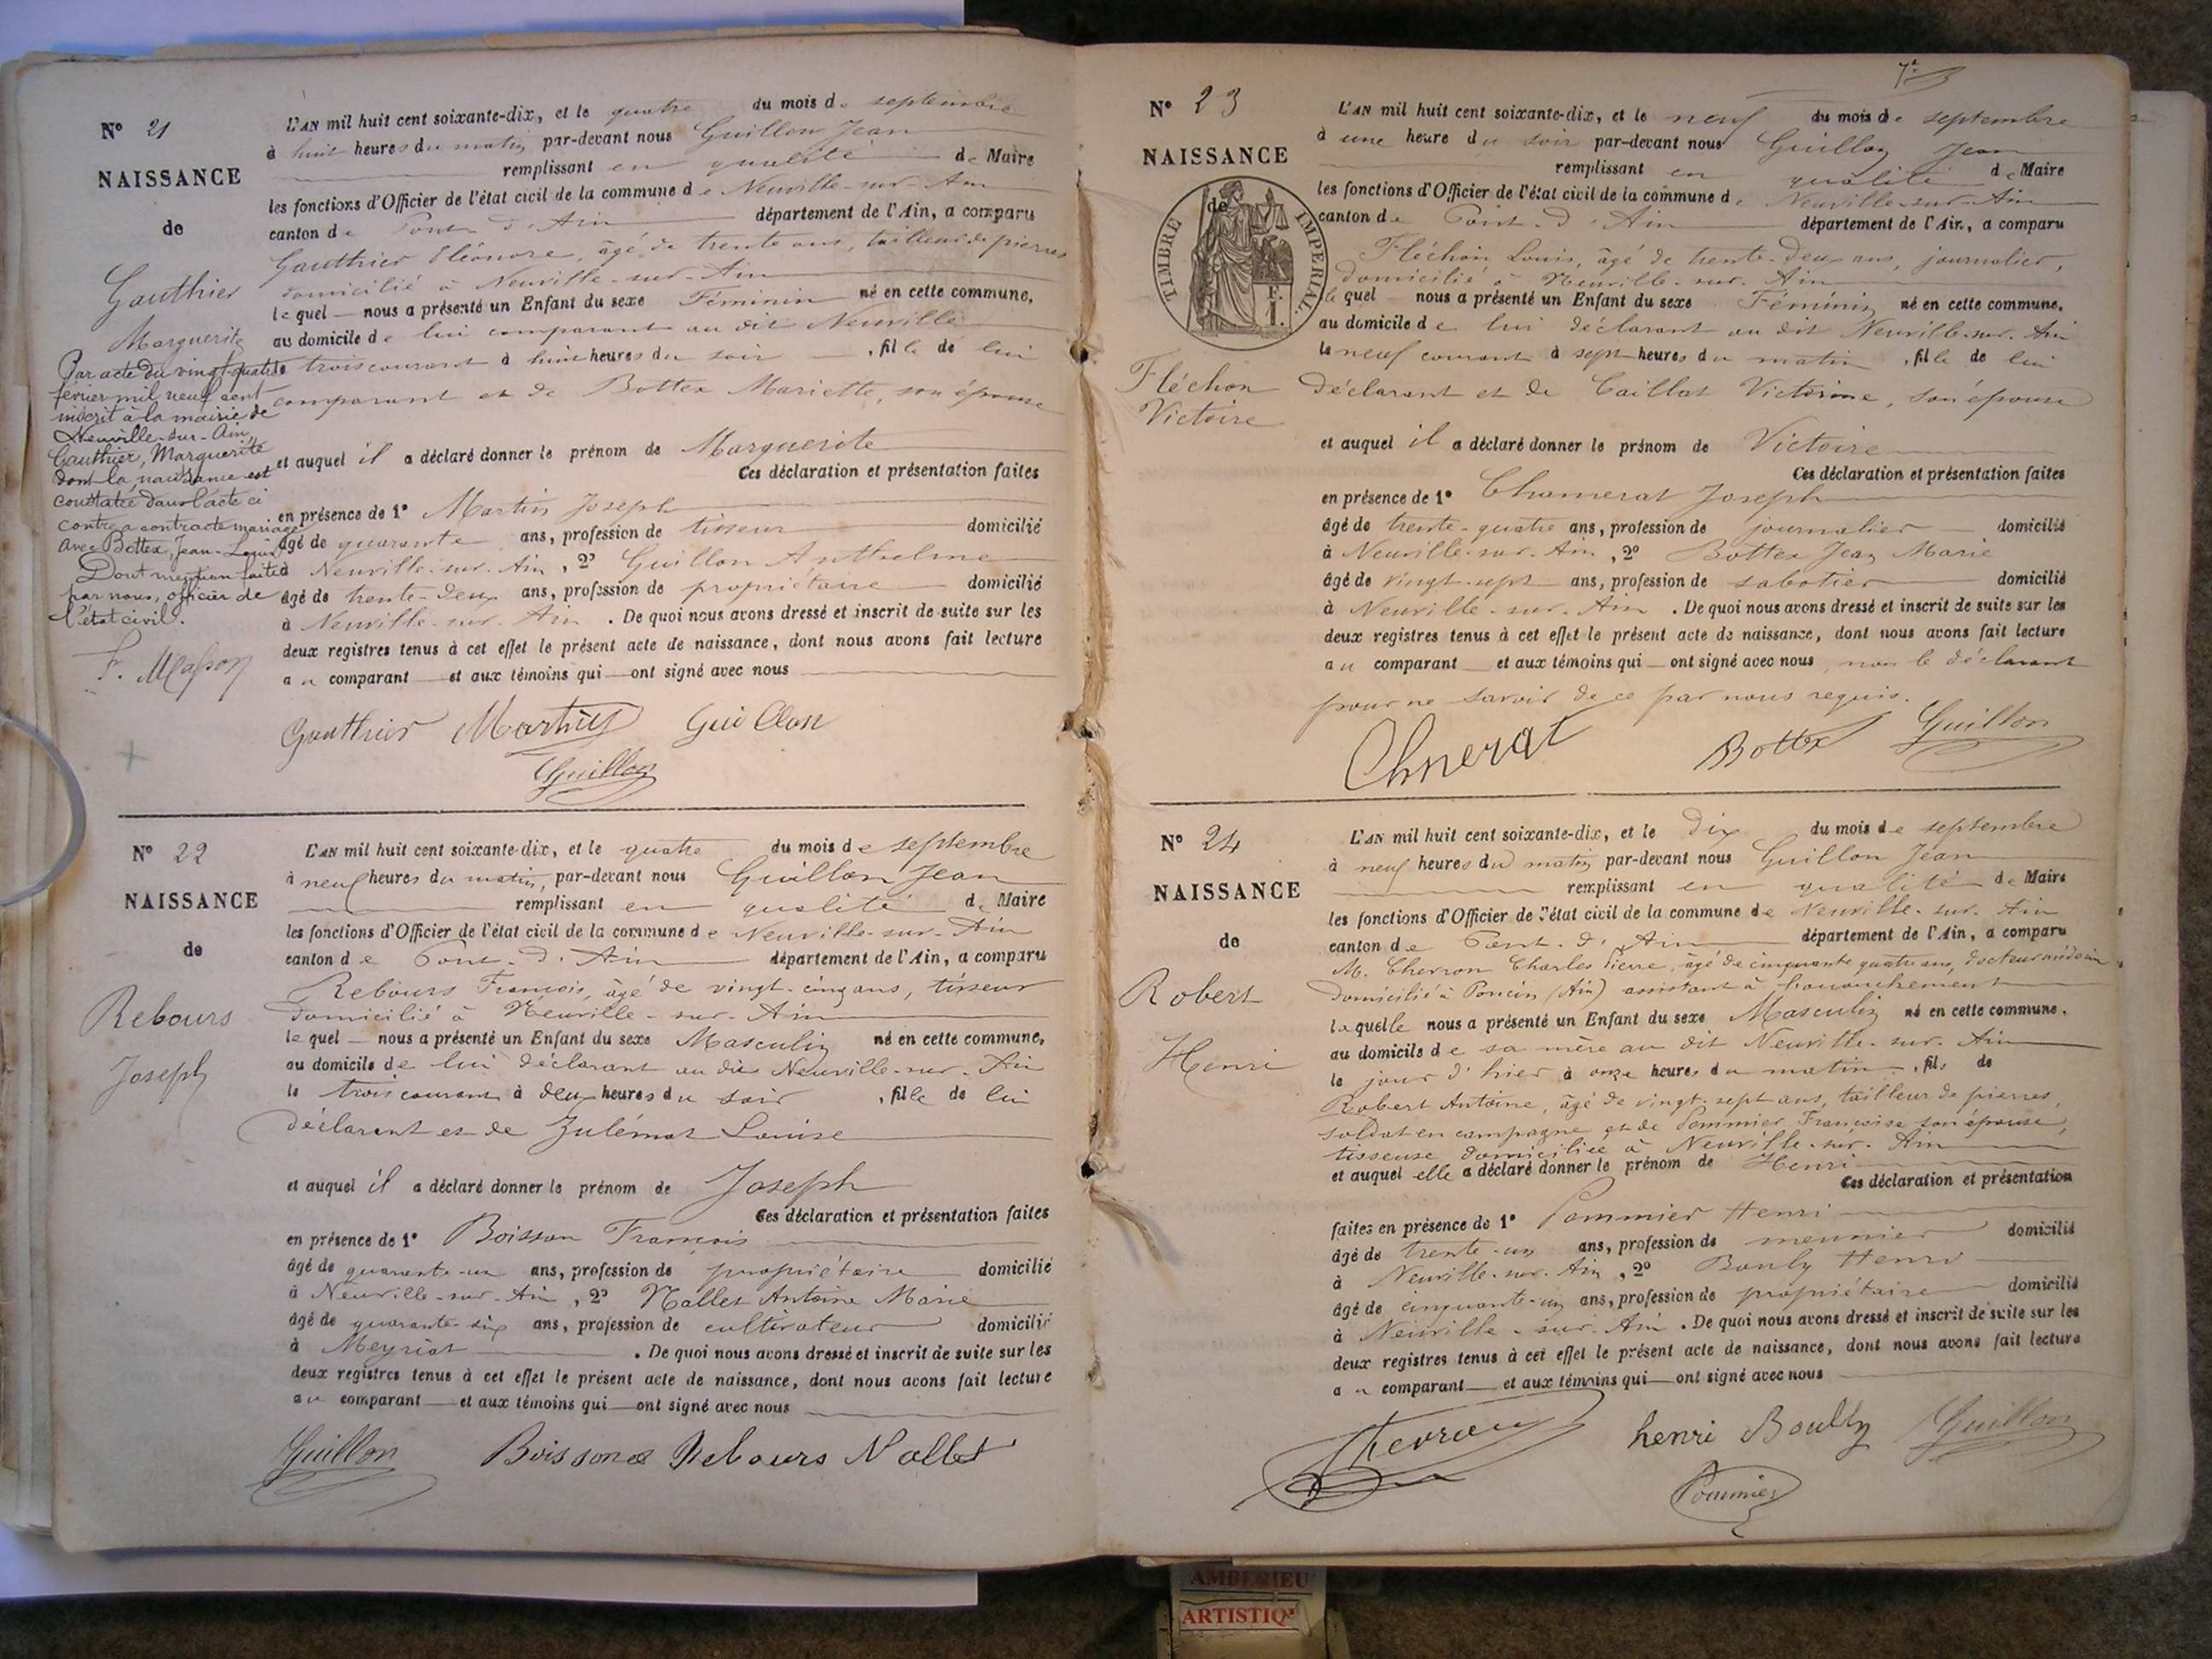 N° 21
NAISSANCE
de
Gauthier
Marguerite
Par acte du vingt-quatre
février mil neuf cent
inscrit à la mairie de
Neuville-sur-Ain,
Gauthier, Marguerite
dont la naissance est
constatée dans l'acte ci
contre a contracté mariage
avec Bottex, Jean-Louis
Dont mention faite
par nous, officier de
l'état civil.
F. Masson
L'AN mil huit cent soixante-dix, et le quatre du mois de septembre
à huit heures du matin par-devant nous Guillon Jean
remplissant en qualité de Maire
les fonctions d'Officier de l'état civil de la commune de Neuville-sur-Ain
canton de Pont-d'Ain département de l'Ain, a comparu
Gauthier Eléonore, âgé de trente ans, tailleur de pierres
domicilié à Neuville-sur-Ain
lequel nous a présenté un Enfant du sexe Féminin né en cette commune,
au domicile de lui comparant au dit Neuville
le trois courant à huit heures du soir, fille de lui
comparant et de Bottex Mariette, son épouse
et auquel il a déclaré donner le prénom de Marguerite
Ces déclaration et présentation faites
en présence de 1° Martin Joseph
âgé de quarante ans, profession de tisseur domicilié
à Neuville-sur-Ain, 2° Guillon Anthelme
âgé de trente-deux ans, profession de propriétaire domicilié
à Neuville-sur-Ain. De quoi nous avons dressé et inscrit de suite sur les
deux registres tenus à cet effet le présent acte de naissance, dont nous avons fait lecture
au comparant et aux témoins qui ont signé avec nous
Gauthier Martin Guillon
Guillon
N° 22
NAISSANCE
de
Rebours
Joseph
L'AN mil huit cent soixante-dix, et le quatre du mois de septembre
à neuf heures du matin, par-devant nous Guillon Jean
remplissant en qualité de Maire
les fonctions d'Officier de l'état civil de la commune de Neuville-sur-Ain
canton de Pont-d'Ain département de l'Ain, a comparu
Rebours François, âgé de vingt-cinq ans, tisseur
domicilié à Neuville-sur-Ain
lequel nous a présenté un Enfant du sexe Masculin né en cette commune,
au domicile de lui déclarant au dit Neuville-sur-Ain
le trois courant à deux heures du soir, fille de lui
déclarant et de Julémat Louise
et auquel il a déclaré donner le prénom de Joseph
Ces déclaration et présentation faites
en présence de 1° Boisson François
âgé de quarante-un ans, profession de propriétaire domicilié
à Neuville-sur-Ain, 2° Nallet Antoine Marie
âgé de quarante-six ans, profession de cultivateur domicilié
à Meyriat. De quoi nous avons dressé et inscrit de suite sur les
deux registres tenus à cet effet le présent acte de naissance, dont nous avons fait lecture
au comparant et aux témoins qui ont signé avec nous
Guillon Boisson Rebours Nallet
N° 23
NAISSANCE
de
TIMBRE IMPERIAL
1 F.
Fléchon
Victoire
L'AN mil huit cent soixante-dix, et le neuf du mois de septembre
à une heure du soir par-devant nous Guillon Jean
remplissant en qualité de Maire
les fonctions d'Officier de l'état civil de la commune de Neuville-sur-Ain
canton de Pont-d'Ain département de l'Ain, a comparu
Fléchon Louis, âgé de trente-deux ans, journalier,
domicilié à Neuville-sur-Ain
lequel nous a présenté un Enfant du sexe Féminin né en cette commune,
au domicile de lui déclarant au dit Neuville-sur-Ain
le neuf courant à sept heures du matin, fille de lui
déclarant et de Caillat Victorine, son épouse
et auquel il a déclaré donner le prénom de Victoire
Ces déclaration et présentation faites
en présence de 1° Chamerat Joseph
âgé de trente-quatre ans, profession de journalier domicilié
à Neuville-sur-Ain, 2° Bottex Jean Marie
âgé de vingt-sept ans, profession de sabotier domicilié
à Neuville-sur-Ain. De quoi nous avons dressé et inscrit de suite sur les
deux registres tenus à cet effet le présent acte de naissance, dont nous avons fait lecture
au comparant et aux témoins qui ont signé avec nous, non le déclarant
pour ne savoir de ce par nous requis.
Chmerat Bottex Guillon
N° 24
NAISSANCE
de
Robert
Henri
L'AN mil huit cent soixante-dix, et le dix du mois de septembre
à neuf heures du matin par-devant nous Guillon Jean
remplissant en qualité de Maire
les fonctions d'Officier de l'état civil de la commune de Neuville-sur-Ain
canton de Pont-d'Ain département de l'Ain, a comparu
M. Chevron Charles Pierre, âgé de cinquante quatre ans, docteur médecin
domicilié à Poncin (Ain) assistant à l'accouchement
laquelle nous a présenté un Enfant du sexe Masculin né en cette commune,
au domicile de sa mère au dit Neuville-sur-Ain
le jour d'hier à onze heures du matin, fils de
Robert Antoine, âgé de vingt-sept ans, tailleur de pierres,
soldat en campagne et de Pommier Françoise son épouse,
tisseuse domiciliée à Neuville-sur-Ain
et auquel elle a déclaré donner le prénom de Henri
Ces déclaration et présentation
faites en présence de 1° Pommier Henri
âgé de trente-un ans, profession de meunier domicilié
à Neuville-sur-Ain, 2° Bouly Henri
âgé de cinquante-un ans, profession de propriétaire domicilié
à Neuville-sur-Ain. De quoi nous avons dressé et inscrit de suite sur les
deux registres tenus à cet effet le présent acte de naissance, dont nous avons fait lecture
au comparant et aux témoins qui ont signé avec nous
Chevron henri Boully Guillon
Pommier
AMBERIEU
ARTISTIQ